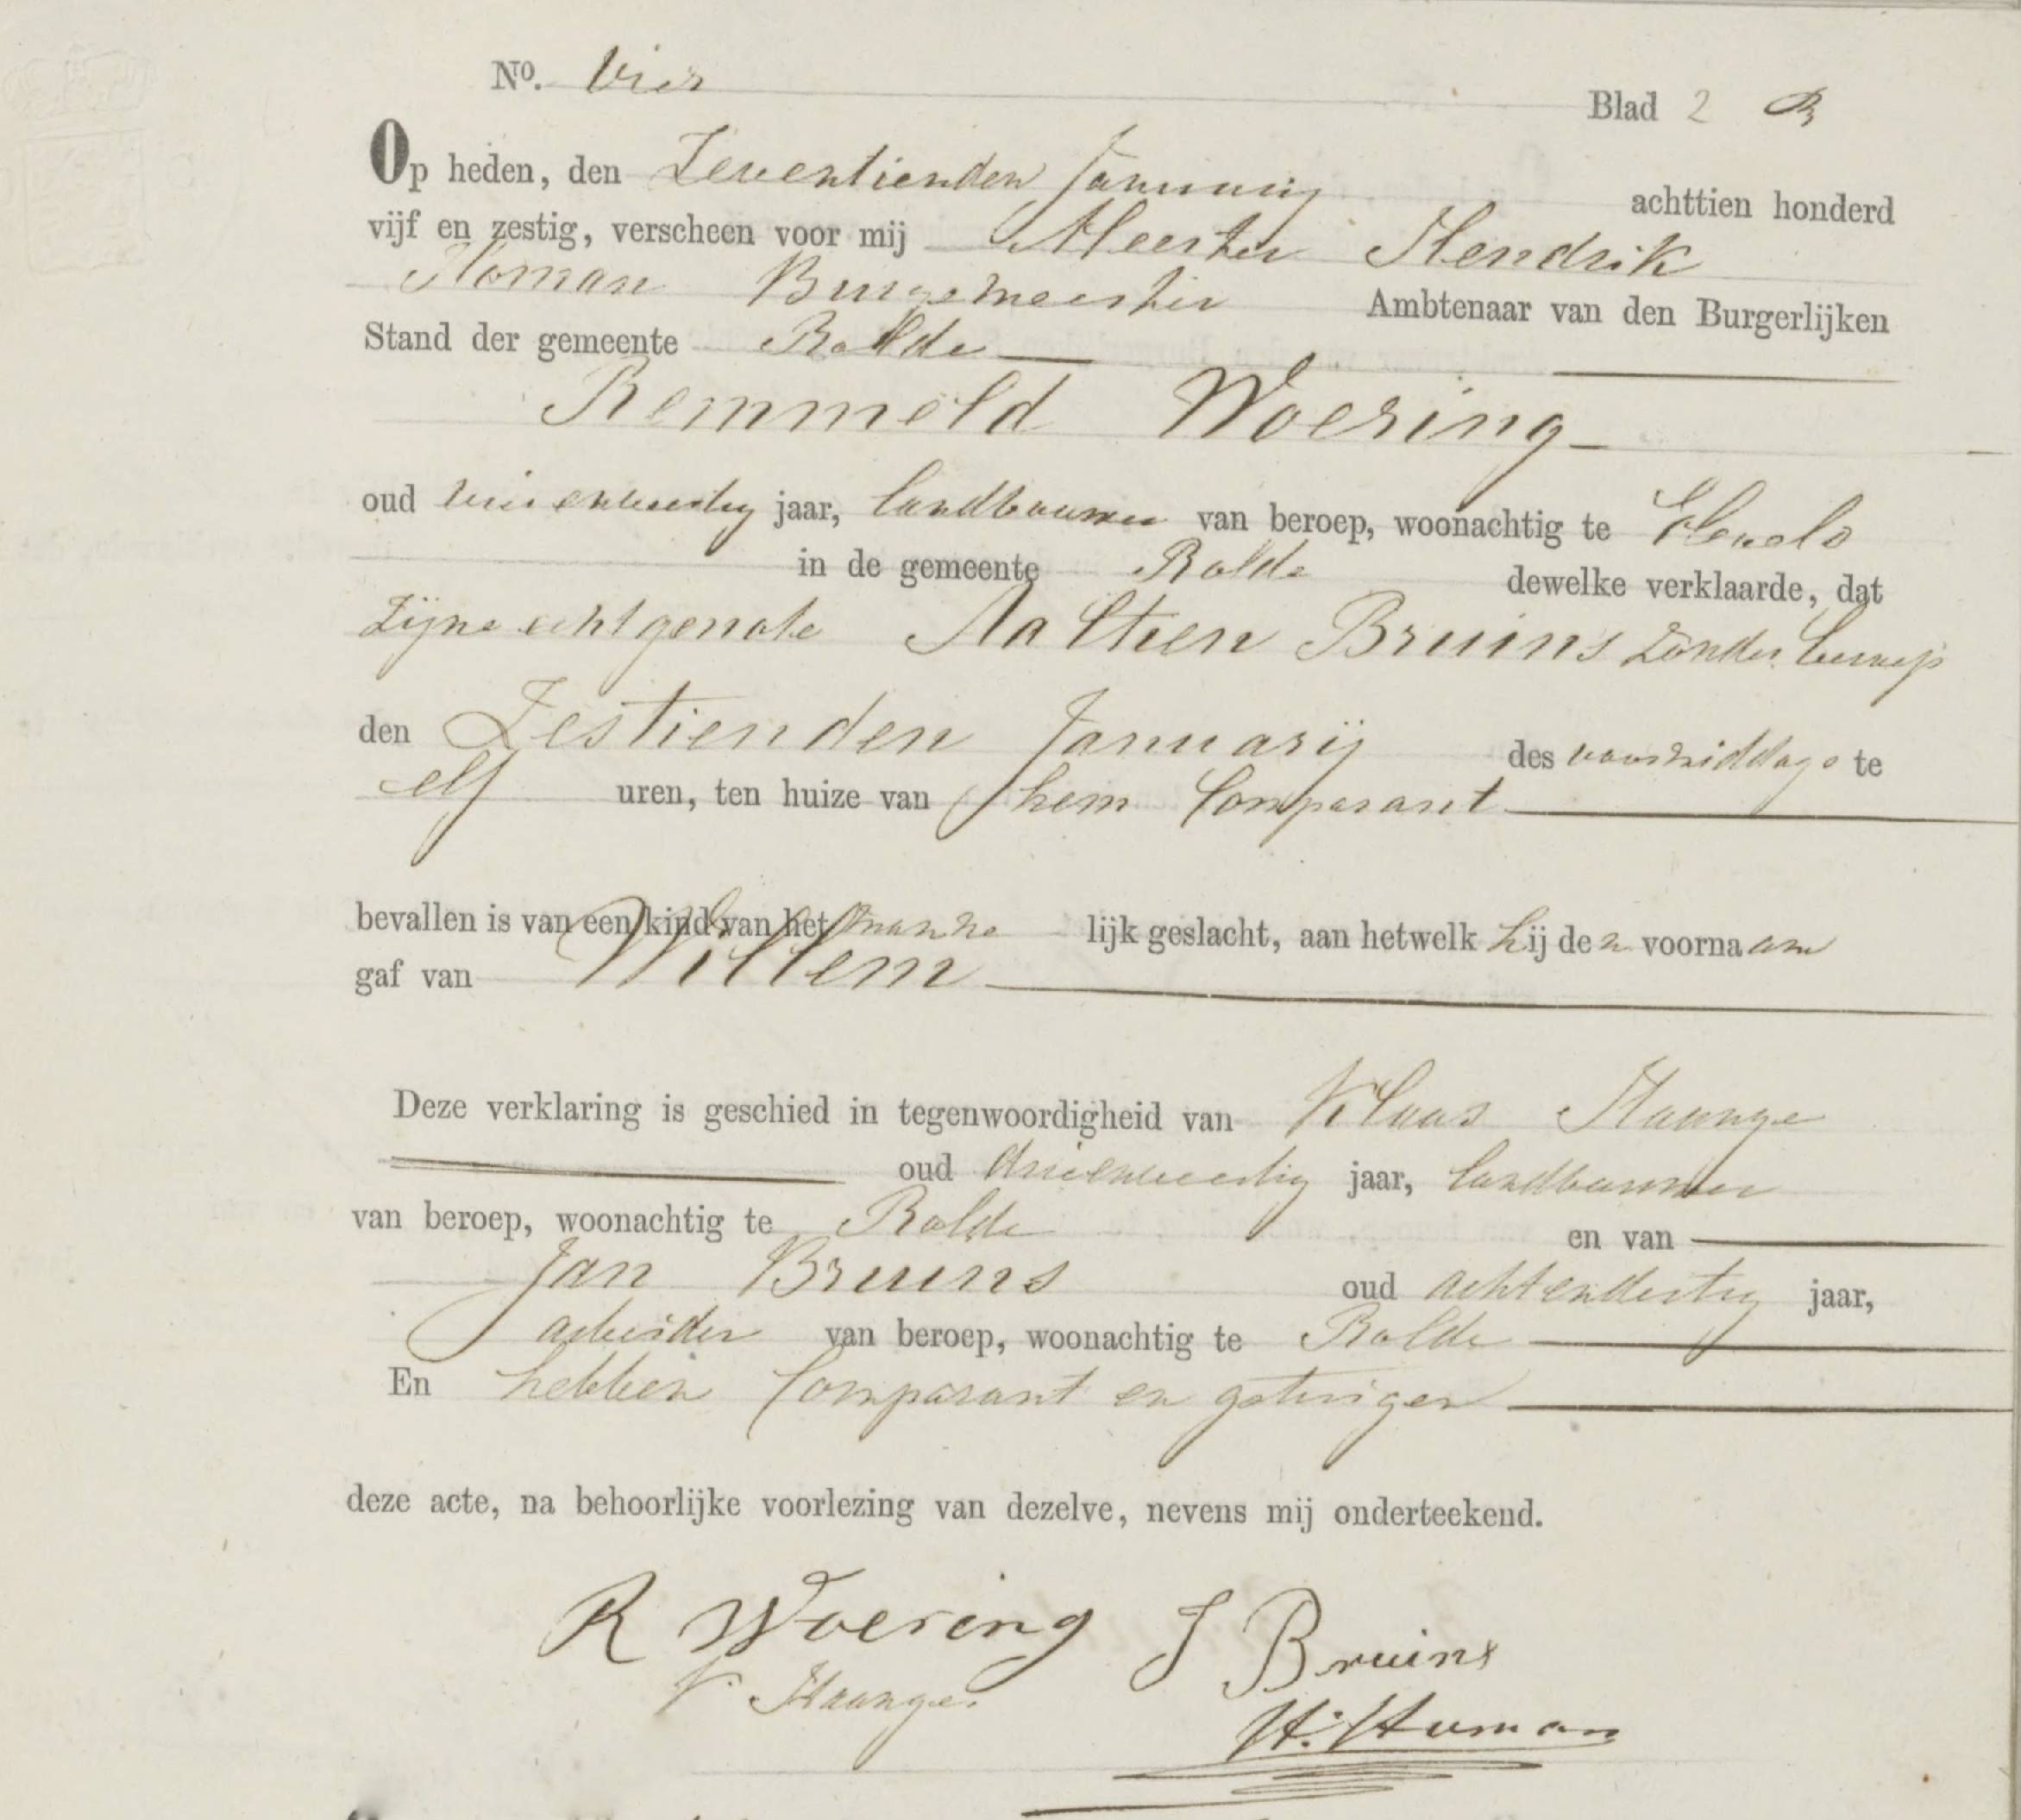 No. Vier
Blad 2
Op heden, den Zeventienden Januarij achttien honderd
vijf en zestig, verscheen voor mij Meester Hendrik
Homan Burgemeester Ambtenaar van den Burgerlijken
Stand der gemeente Rolde
Remmeld Woering
oud jaar, landbouwer van beroep, woonachtig te
in de gemeente Rolde dewelke verklaarde, dat
zijne echtgenote Aaltien Bruins zonder beroep
den Zestienden Januarij des voormiddags te
elf uren, ten huize van hem Comparant
bevallen is van een kind van het manne lijk geslacht, aan hetwelk hij den voornaam
gaf van Willem
Deze verklaring is geschied in tegenwoordigheid van Klaas Haange
oud jaar, landbouwer
van beroep, woonachtig te Rolde en van
Jan Bruins oud achtendertig jaar,
arbeider van beroep, woonachtig te Rolde
En hebben Comparant en getuigen
deze acte, na behoorlijke voorlezing van dezelve, nevens mij onderteekend.
R Woering J Bruins
K. Haange.
H. Homan